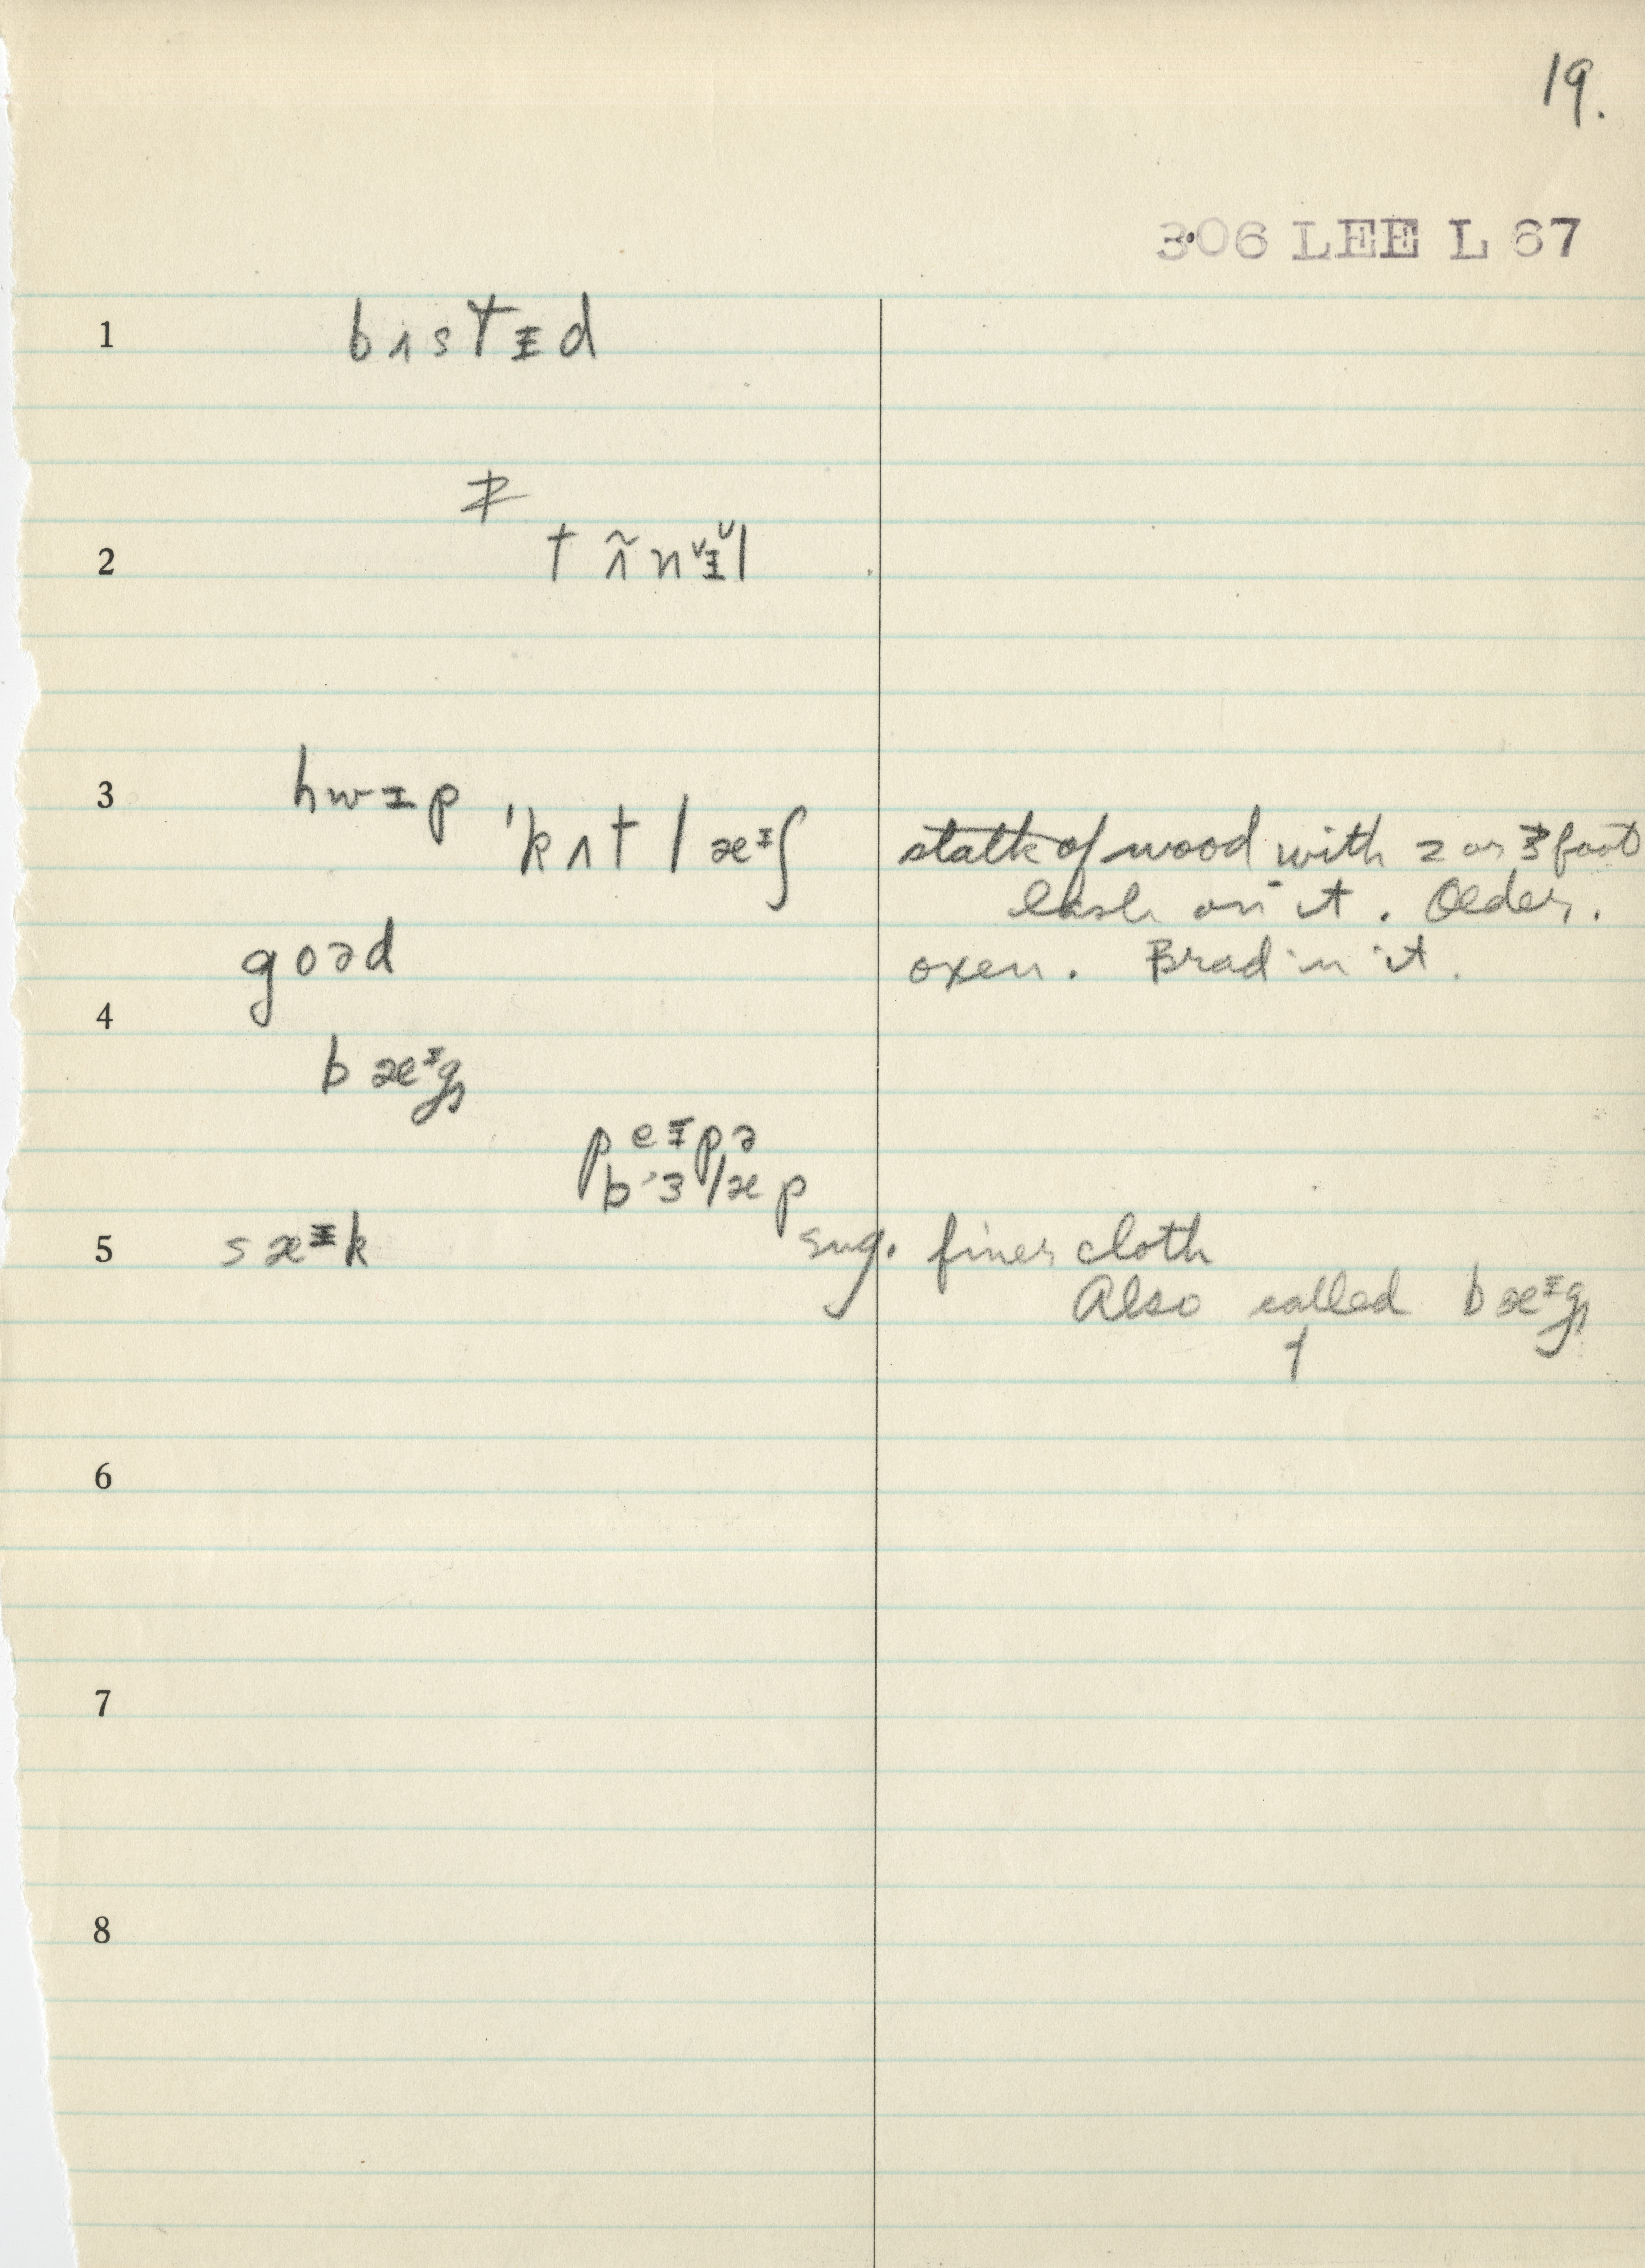 19.
306 LEE L 67
1 bʌstɪd
≢
2 t ʌ̃ nɪ̆l
3 hwɪp
ˈkʌtlæᶦʃ stalk of wood with 2 or 3 foot
lash on it. Older.
goəd oxen. Brad in it.
4
bæᶦg
peɪpə
bɜlæp
5 sæᶦk sug. finer cloth
Also called bæᶦg
↑
6
7
8